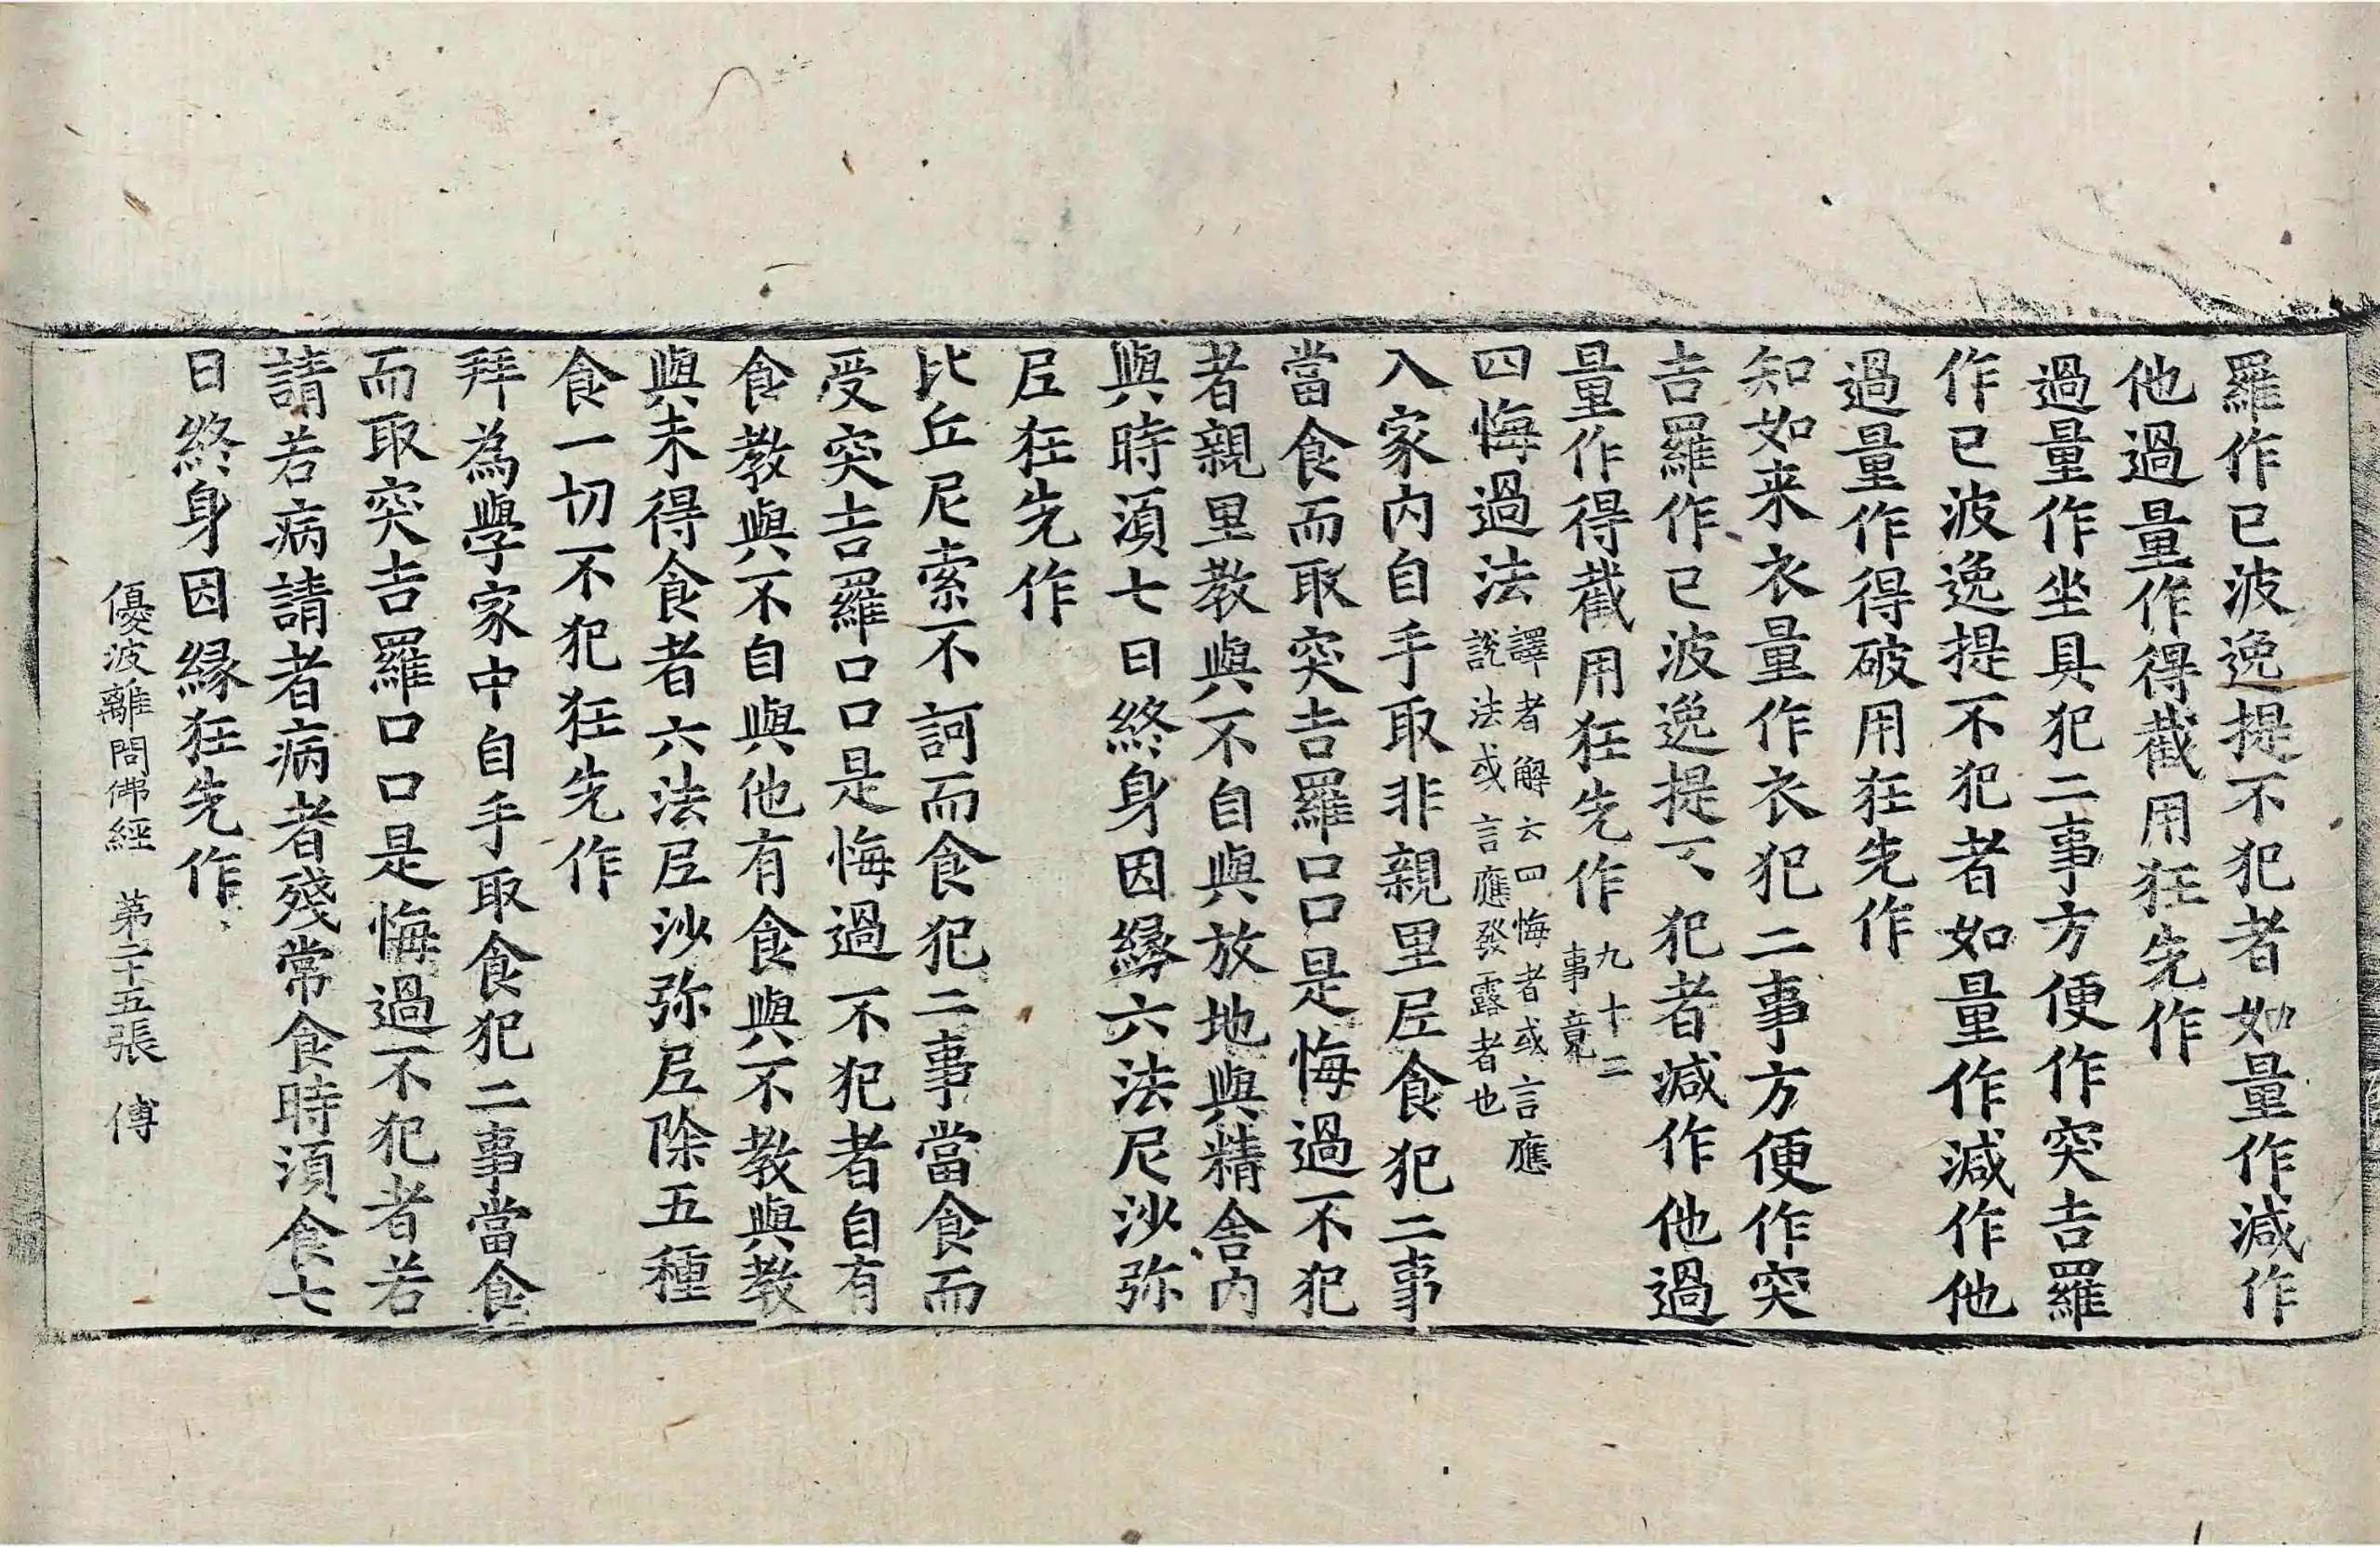 羅作已波逸提不犯者如量作減作
他過量作得截用狂先作
過量作坐具犯二事方便作突吉羅
作已波逸提不犯者如量作減作他
過量作得破用狂先作
知如来衣量作衣犯二事方便作突
吉羅作已波逸提不犯者減作他過
量作得截用狂先作九十二
事竟
四悔過法譯者解云四悔者或言應
說法或言應發露者也
入家内自手取非親里𡰱食犯二事
當食而取突吉羅口口是悔過不犯
者親里教與不自與放地與精舍内
與時湏七日終身因緣六法尼沙弥
𡰱狂先作
比丘尼索不訶而食犯二事當食而
受突吉羅口口是悔過不犯者自有
食教與不自與他有食與不教與教
與未得食者六法𡰱沙弥𡰱除五種
食一切不犯狂先作
拜為學家中自手取食犯二事當食
而取突吉羅口口是悔過不犯者若
請若病請者病者殘常食時湏食七
日終身因緣狂先作
優波離問佛經 第二十五張 傅